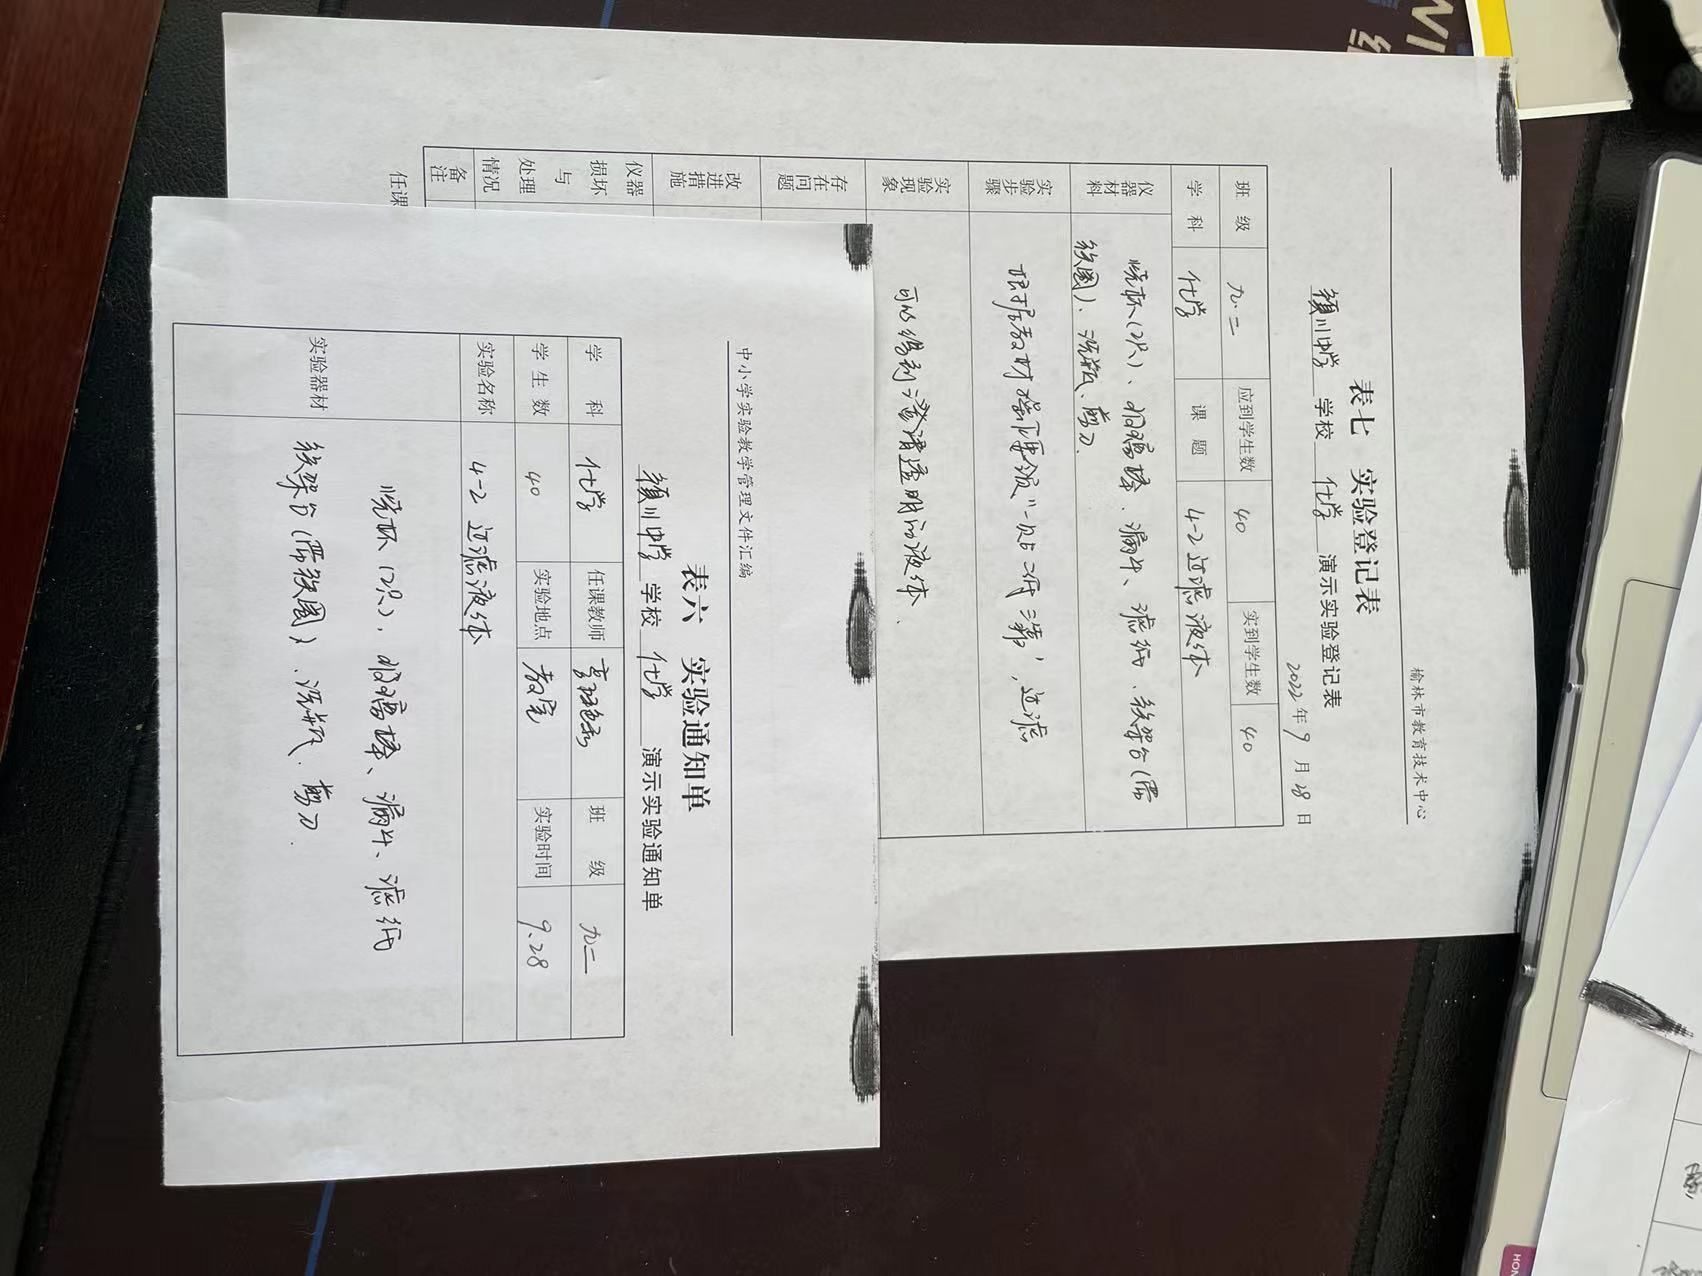 榆林市教育技术中心
表七 实验登记表
颍川中学 学校 化学 演示实验登记表
2022年9月28日
班级 九.二 应到学生数 40 实到学生数 40
学科 化学 课题 4-2 过滤液体
仪器材料 烧杯(2只)、玻璃棒、漏斗、滤纸、铁架台(带
铁圈)、洗瓶、剪刀.
实验步骤 根据教材操作要领"一贴二低三靠",过滤
实验现象 可以得到澄清透明的液体.
存在问题
改进措施
仪器损坏与处理情况
备注
任课
中小学实验教学管理文件汇编
表六 实验通知单
颍川中学 学校 化学 演示实验通知单
学科 化学 任课教师 班级 九二
学生数 40 实验地点 教室 实验时间 9.28
实验名称 4-2 过滤液体
实验器材 烧杯(2只)、玻璃棒、漏斗、滤纸
铁架台(带铁圈)、洗瓶、剪刀.